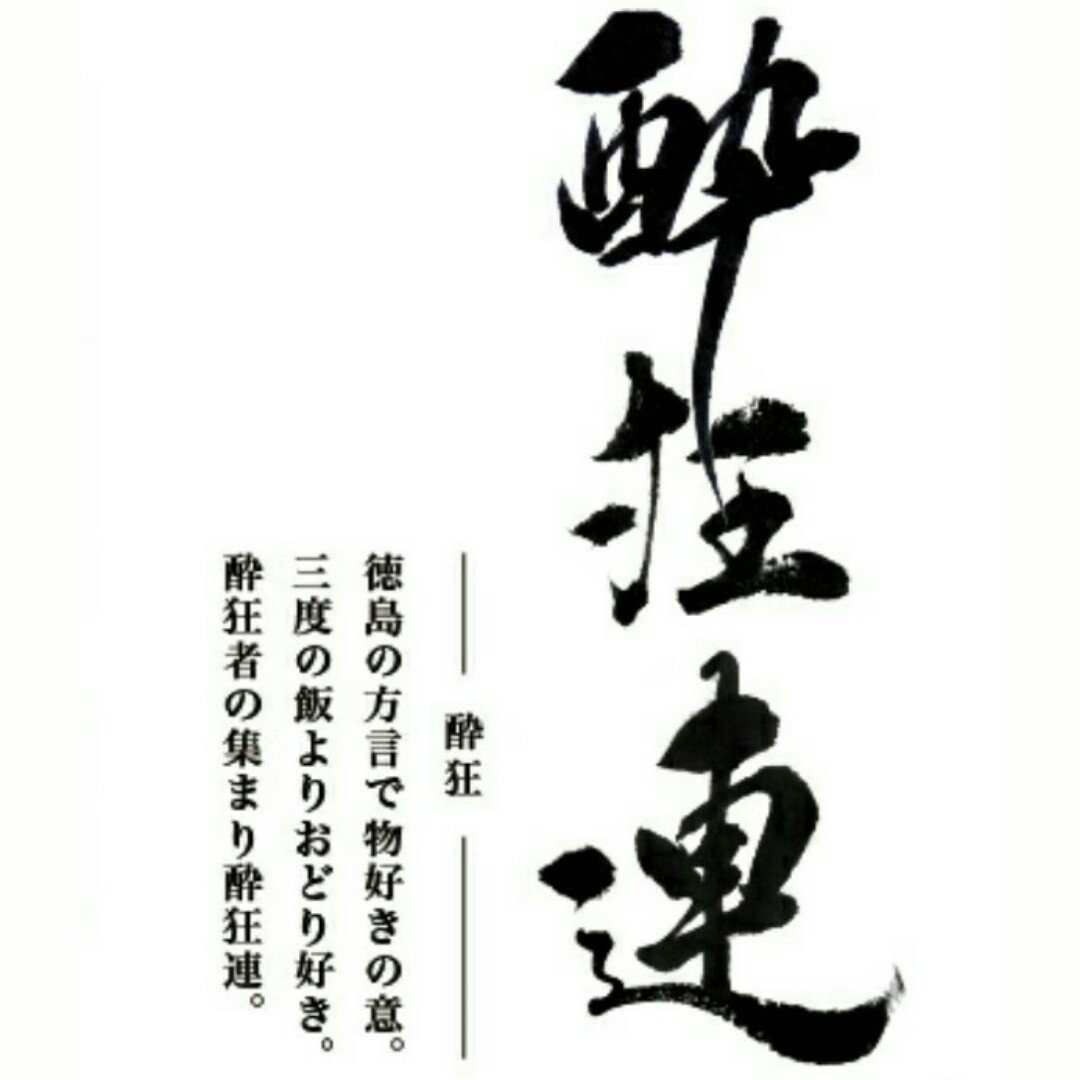 酔狂連
酔狂
徳島の方言で物好きの意。
三度の飯よりおどり好き。
酔狂者の集まり酔狂連。